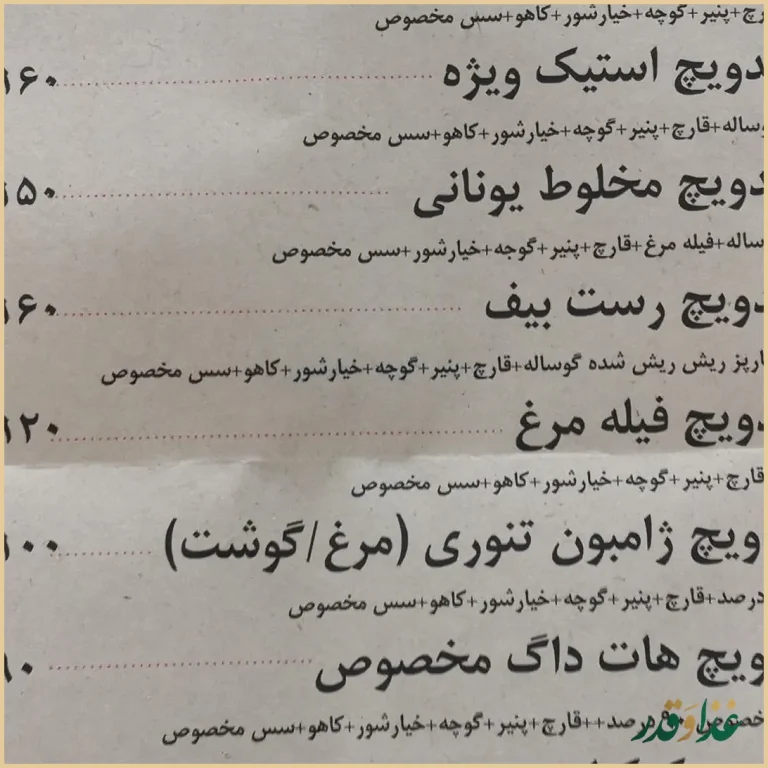 رچ+پنیر+گوچه+خیارشور+کاهو+سس مخصوص
دویچ استیک ویژه ۱۶۰
وساله+قارچ+پنیر+گوچه+خیارشور+کاهو+سس مخصوص
دویچ مخلوط یونانی ۱۵۰
ساله+فیله مرغ+قارچ+پنیر+گوجه+خیارشور+سس مخصوص
دویچ رست بیف ۱۶۰
ارپز ریش ریش شده گوساله+قارچ+پنیر+گوچه+خیارشور+کاهو+سس مخصوص
دویچ فیله مرغ ۱۲۰
قارچ+پنیر+گوچه+خیارشور+کاهو+سس مخصوص
ویچ ژامبون تنوری (مرغ/گوشت) ۱۰۰
درصد+قارچ+پنیر+گوچه+خیارشور+کاهو+سس مخصوص
ویچ هات داگ مخصوص ۹۰
خصوص ۹۰ درصد++قارچ+پنیر+گوچه+خیارشور+کاهو+سس مخصوص
غذا و قدر